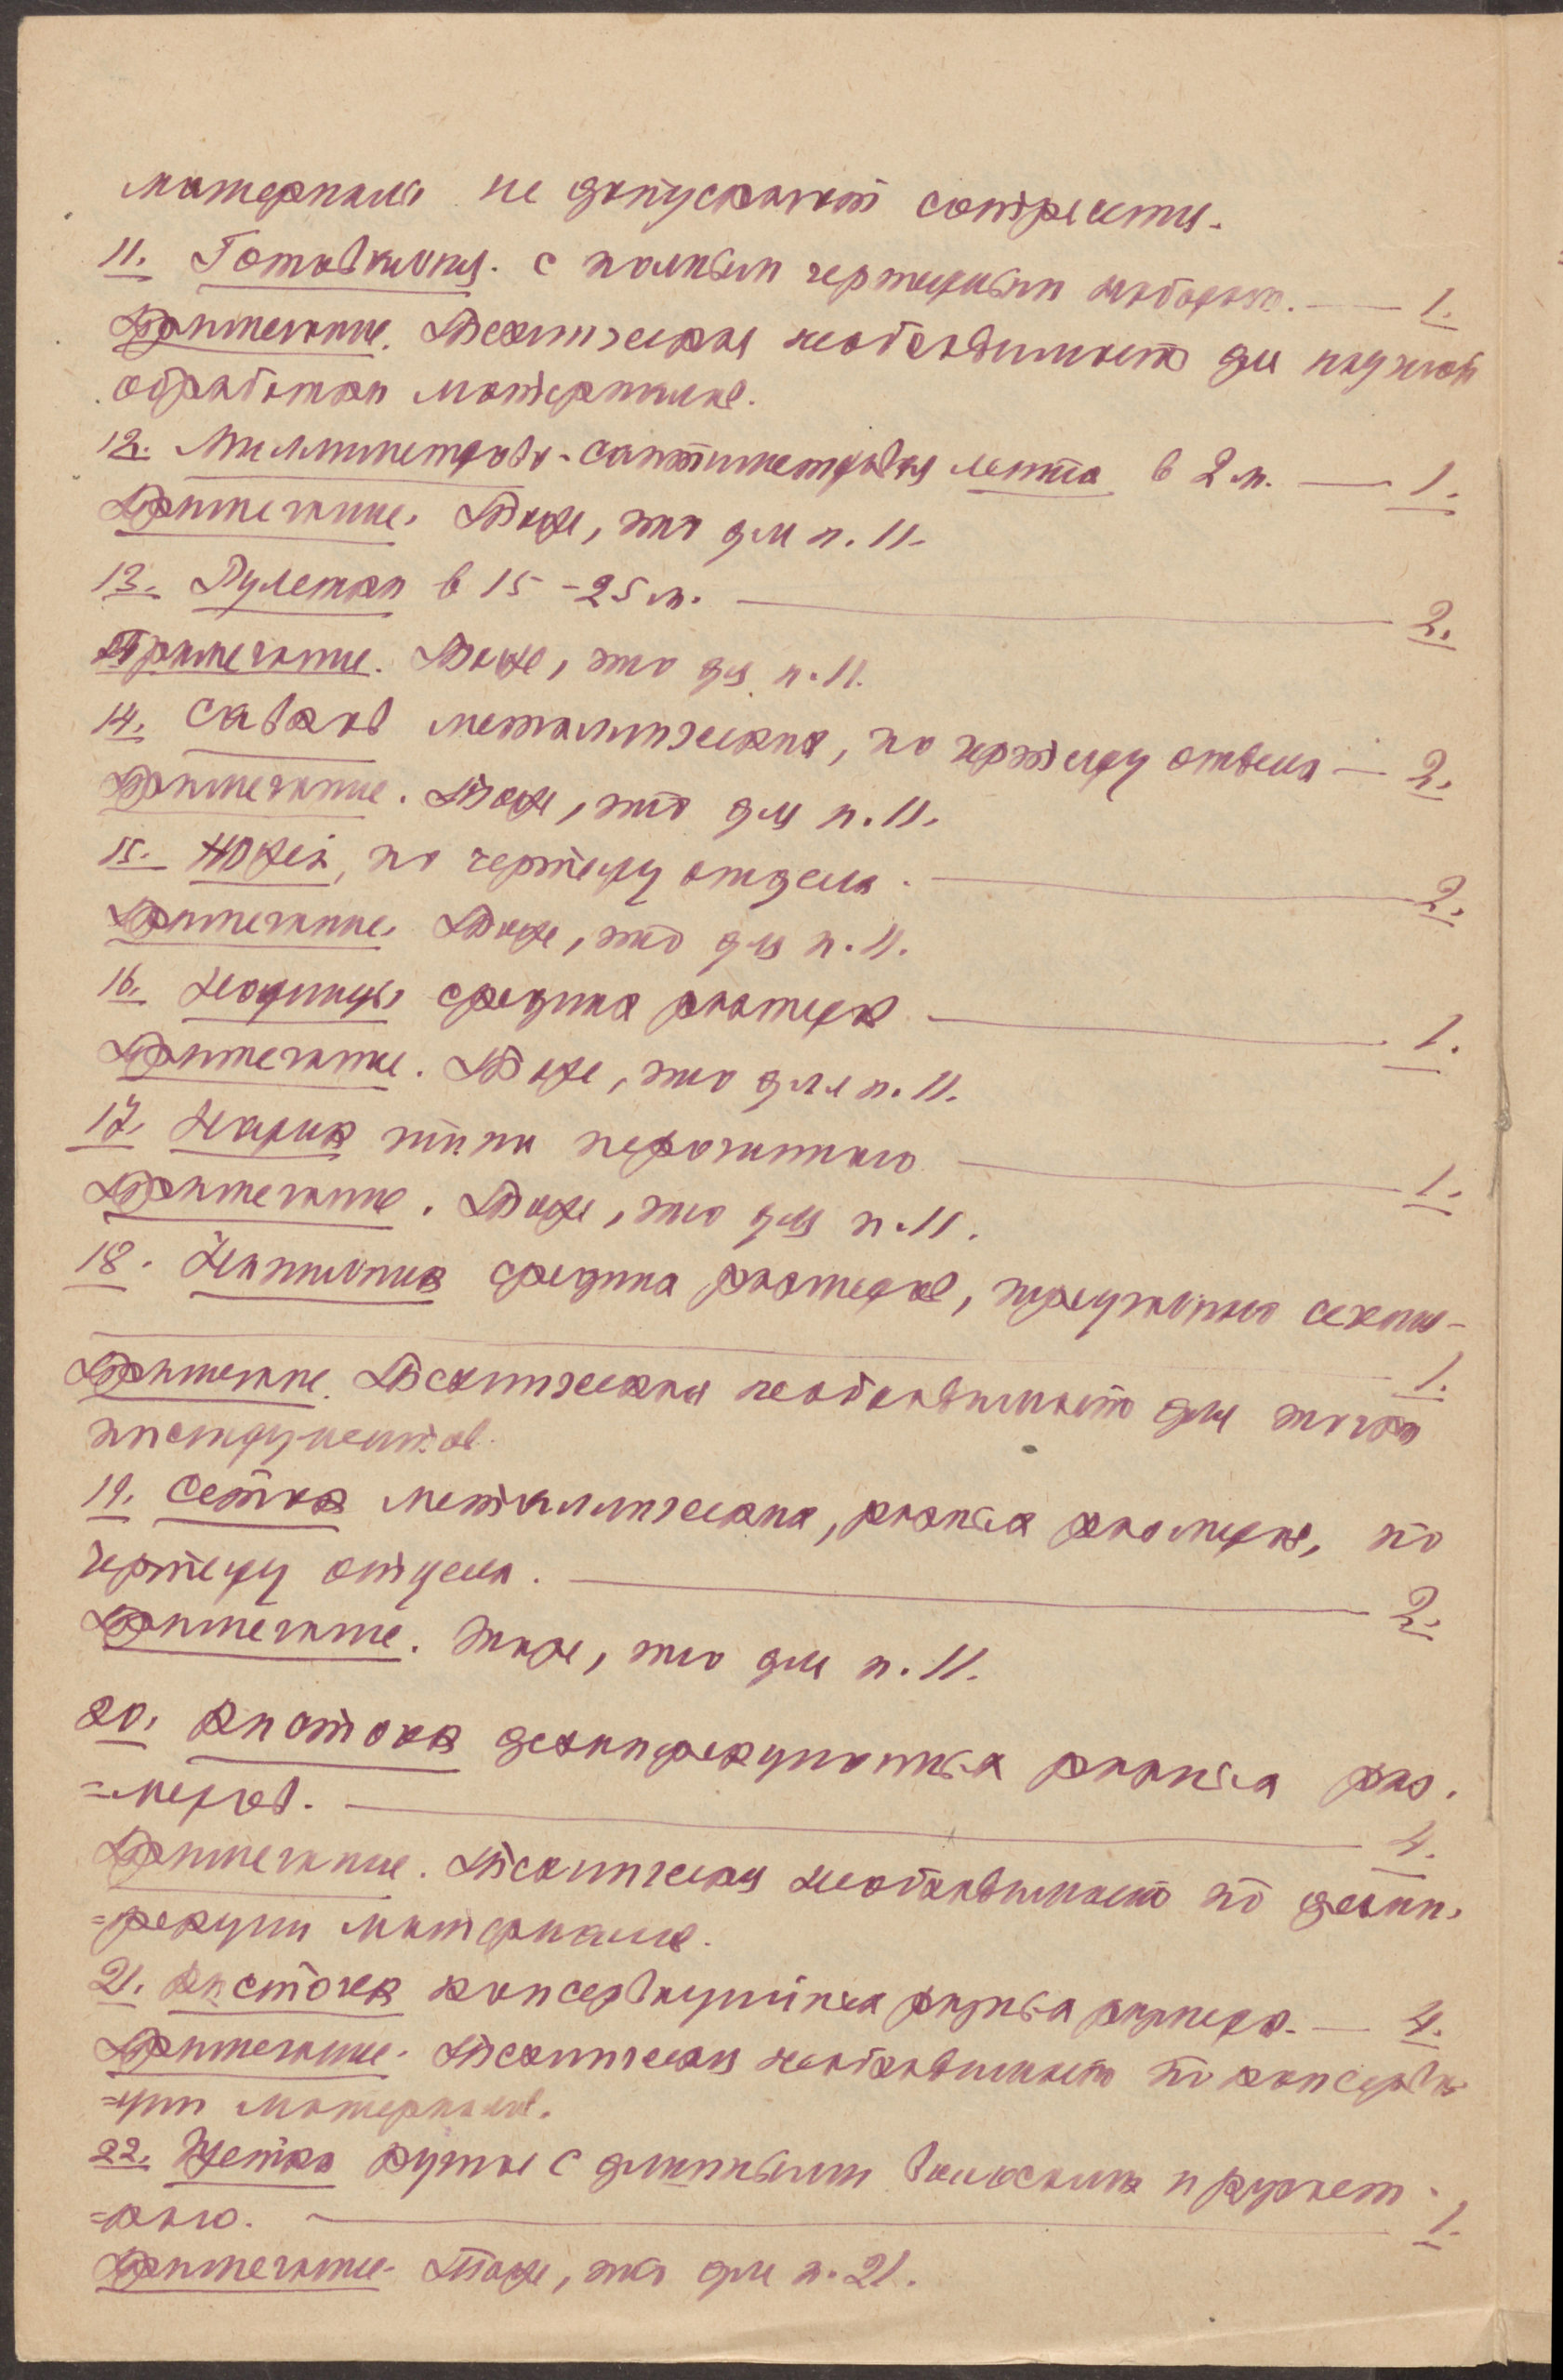 материалы не допускают сотрясения.
11. Готовальня. с полным чертежным набором. — 1.
Примечание. Техническая необходимость для научной
обработки материалов.
12. Миллиметрово-сантиметровая лента в 2 м. — 1.
Примечание. Тоже, что для п. 11.
13. Рулетка в 15-25 м. — 2.
Примечание. Тоже, что для п. 11.
14. Савков металлических, по чертежу отдела — 2.
Примечание. Тоже, что для п. 11.
15. Ножей, по чертежу отдела. — 2.
Примечание. Тоже, что для п. 11.
16. Ножницы средних размеров — 1.
Примечание. Тоже, что для п. 11.
17. Ножик типа перочинного — 1.
Примечание. Тоже, что для п. 11.
18. Напильник средних размеров,
— 1.
Примечание. Техническая необходимость для точки
инструментов.
19. Сеток металлических, разных размеров, по
чертежу отдела. — 2.
Примечание. Тоже, что для п. 11.
20. Кисточек дезинфекционных разных раз-
=меров. — 4.
Примечание. Техническая необходимость по дезин-
=фекции материалов.
21. Кисточек консервационных разных размеров. — 4.
Примечание. Техническая необходимость по консерва-
=ции материалов.
22. Щетка ручная с длинным волосом и ручкет-
=кою. — 1.
Примечание. Тоже, что для п. 21.